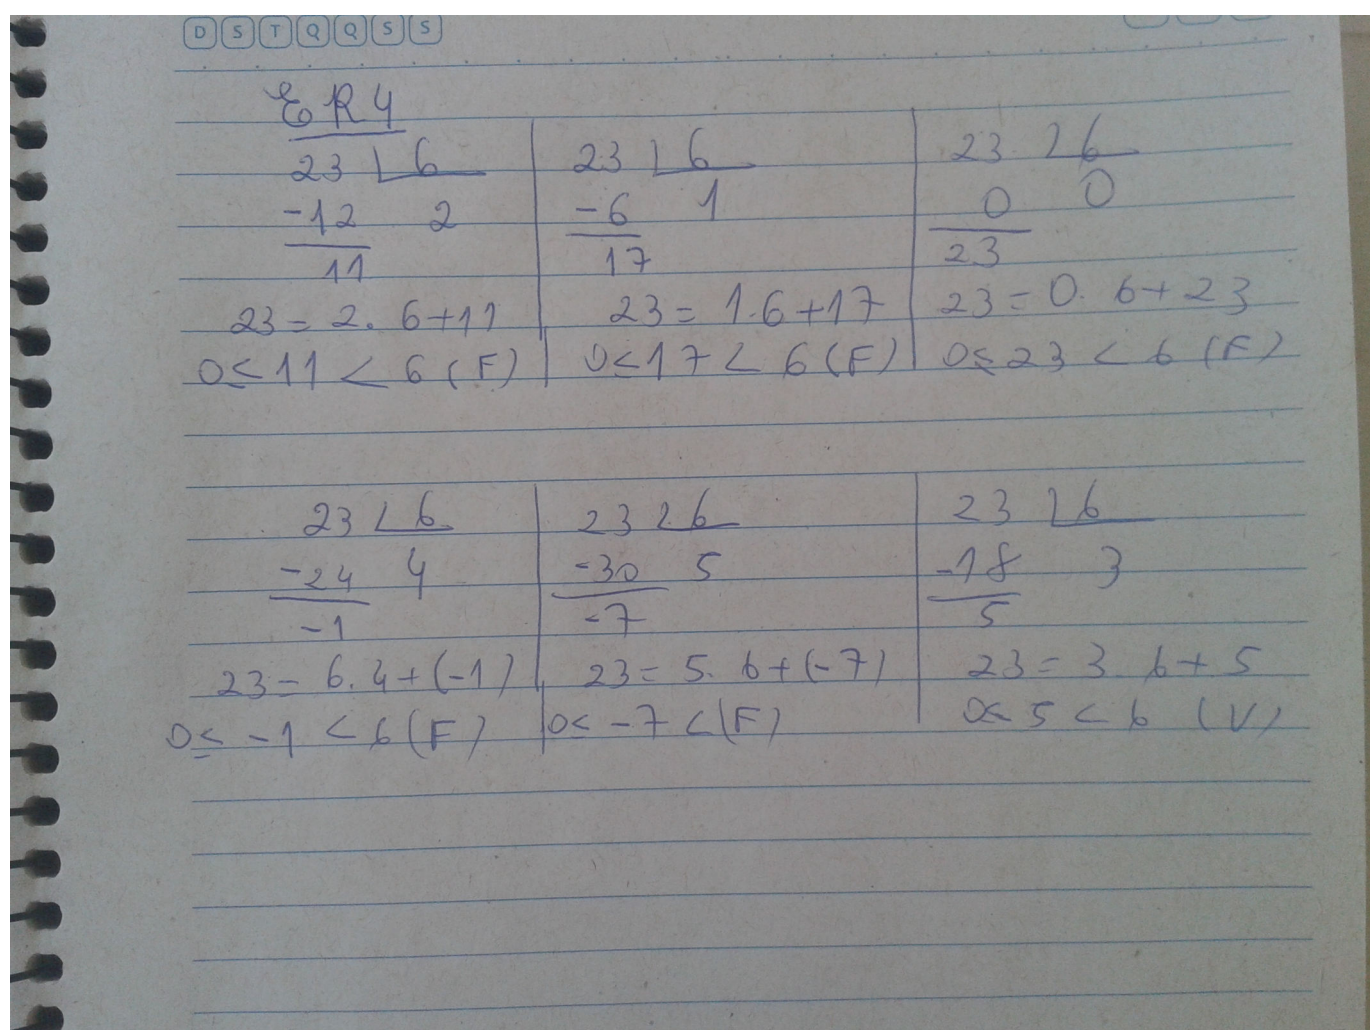 D S T Q Q S S
ER4
23 6
-12 2
11
23 = 2. 6+11
0≤11 < 6 (F)
23 6
-6 1
17
23 = 1.6+17
0≤17 < 6 (F)
23 6
0 0
23
23 = 0. 6+23
0≤23 < 6 (F)
23 6
-24 4
-1
23 = 6.4+(-1)
0≤ -1 < 6 (F)
23 6
-30 5
-7
23 = 5. 6+(-7)
0≤ -7 < (F)
23 6
-18 3
5
23 = 3. 6+ 5
0≤ 5 < 6 (V)